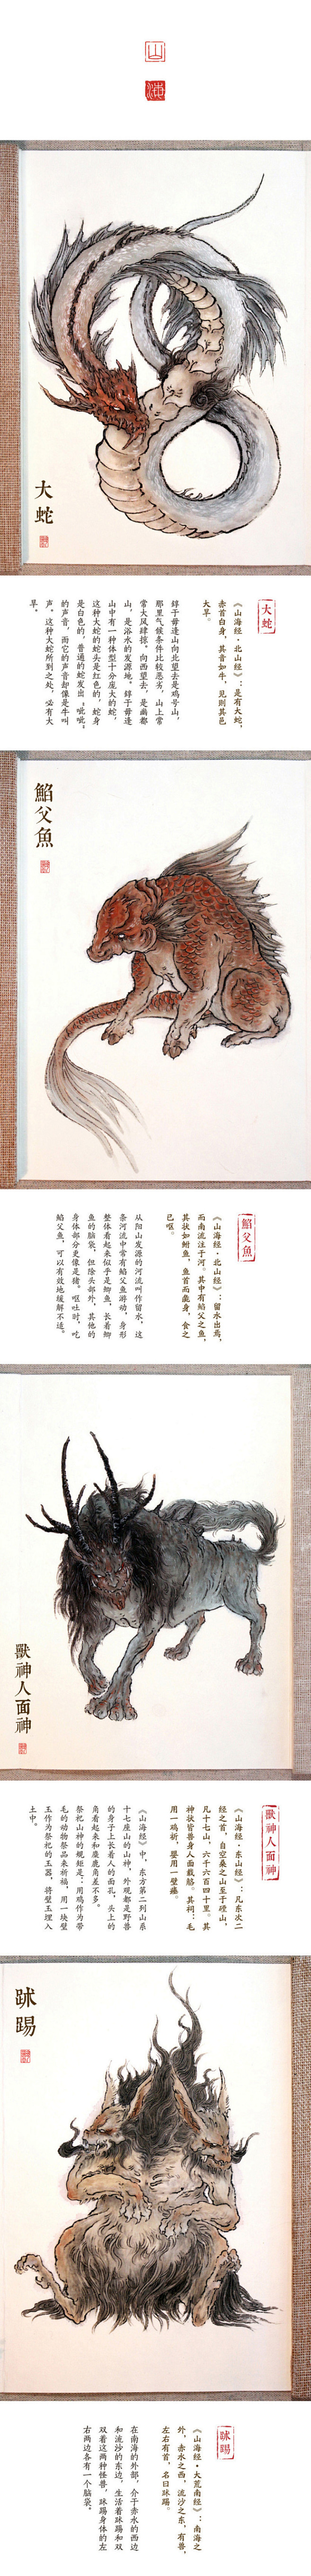 山
海
大蛇
大蛇
《山海经·北山经》：是有大蛇，
赤首白身，其音如牛，见则其邑
大旱。
錞于毋逢山向北望去是鸡号山，
那里气候条件比较恶劣，山上常
常大风肆掠。向西望去，是幽都
山，是浴水的发源地。錞于毋逢
山中有一种体型十分庞大的蛇，
这种大蛇的蛇头是红色的，蛇身
是白色的，普通的蛇发出“呲呲”
的声音，而它的声音却像是牛叫
声。这种大蛇所到之处，必有大
旱。
䱤父魚
䱤父魚
《山海经·北山经》：留水出焉，
而南流注于河。其中有䱤父之鱼，
其状如鲋鱼，鱼首而彘身，食之
已呕。
从阳山发源的河流叫作留水，这
条河流中常有䱤父鱼游动，身形
整体看起来似乎是鲫鱼，长着鲫
鱼的脑袋，但除头部外，其他的
身体部分更像是猪。呕吐时，吃
䱤父鱼，可以有效地缓解不适。
獸神人面神
獸神人面神
《山海经·东山经》：凡东次二
经之首，自空桑之山至于䃌山，
凡十七山，六千六百四十里。其
神状皆兽身人面载觡。其祠：毛
用一鸡祈，婴用一璧瘗。
《山海经》中，东方第二列山系
十七座山的山神，外观都是野兽
的身子上长着人的面孔，头上的
角看起来和麋鹿角差不多。
祭祀山神的规矩是：用鸡作为带
毛的动物祭品来祈福，用一块璧
玉作为祭祀的玉器，将璧玉埋入
土中。
跊踢
跊踢
《山海经·大荒南经》：南海之
外，赤水之西，流沙之东，有兽，
左右有首，名曰跊踢。
在南海的外部，介于赤水的西边
和流沙的东边，生活着跊踢和双
双着这两种怪兽，跊踢身体的左
右两边各有一个脑袋。